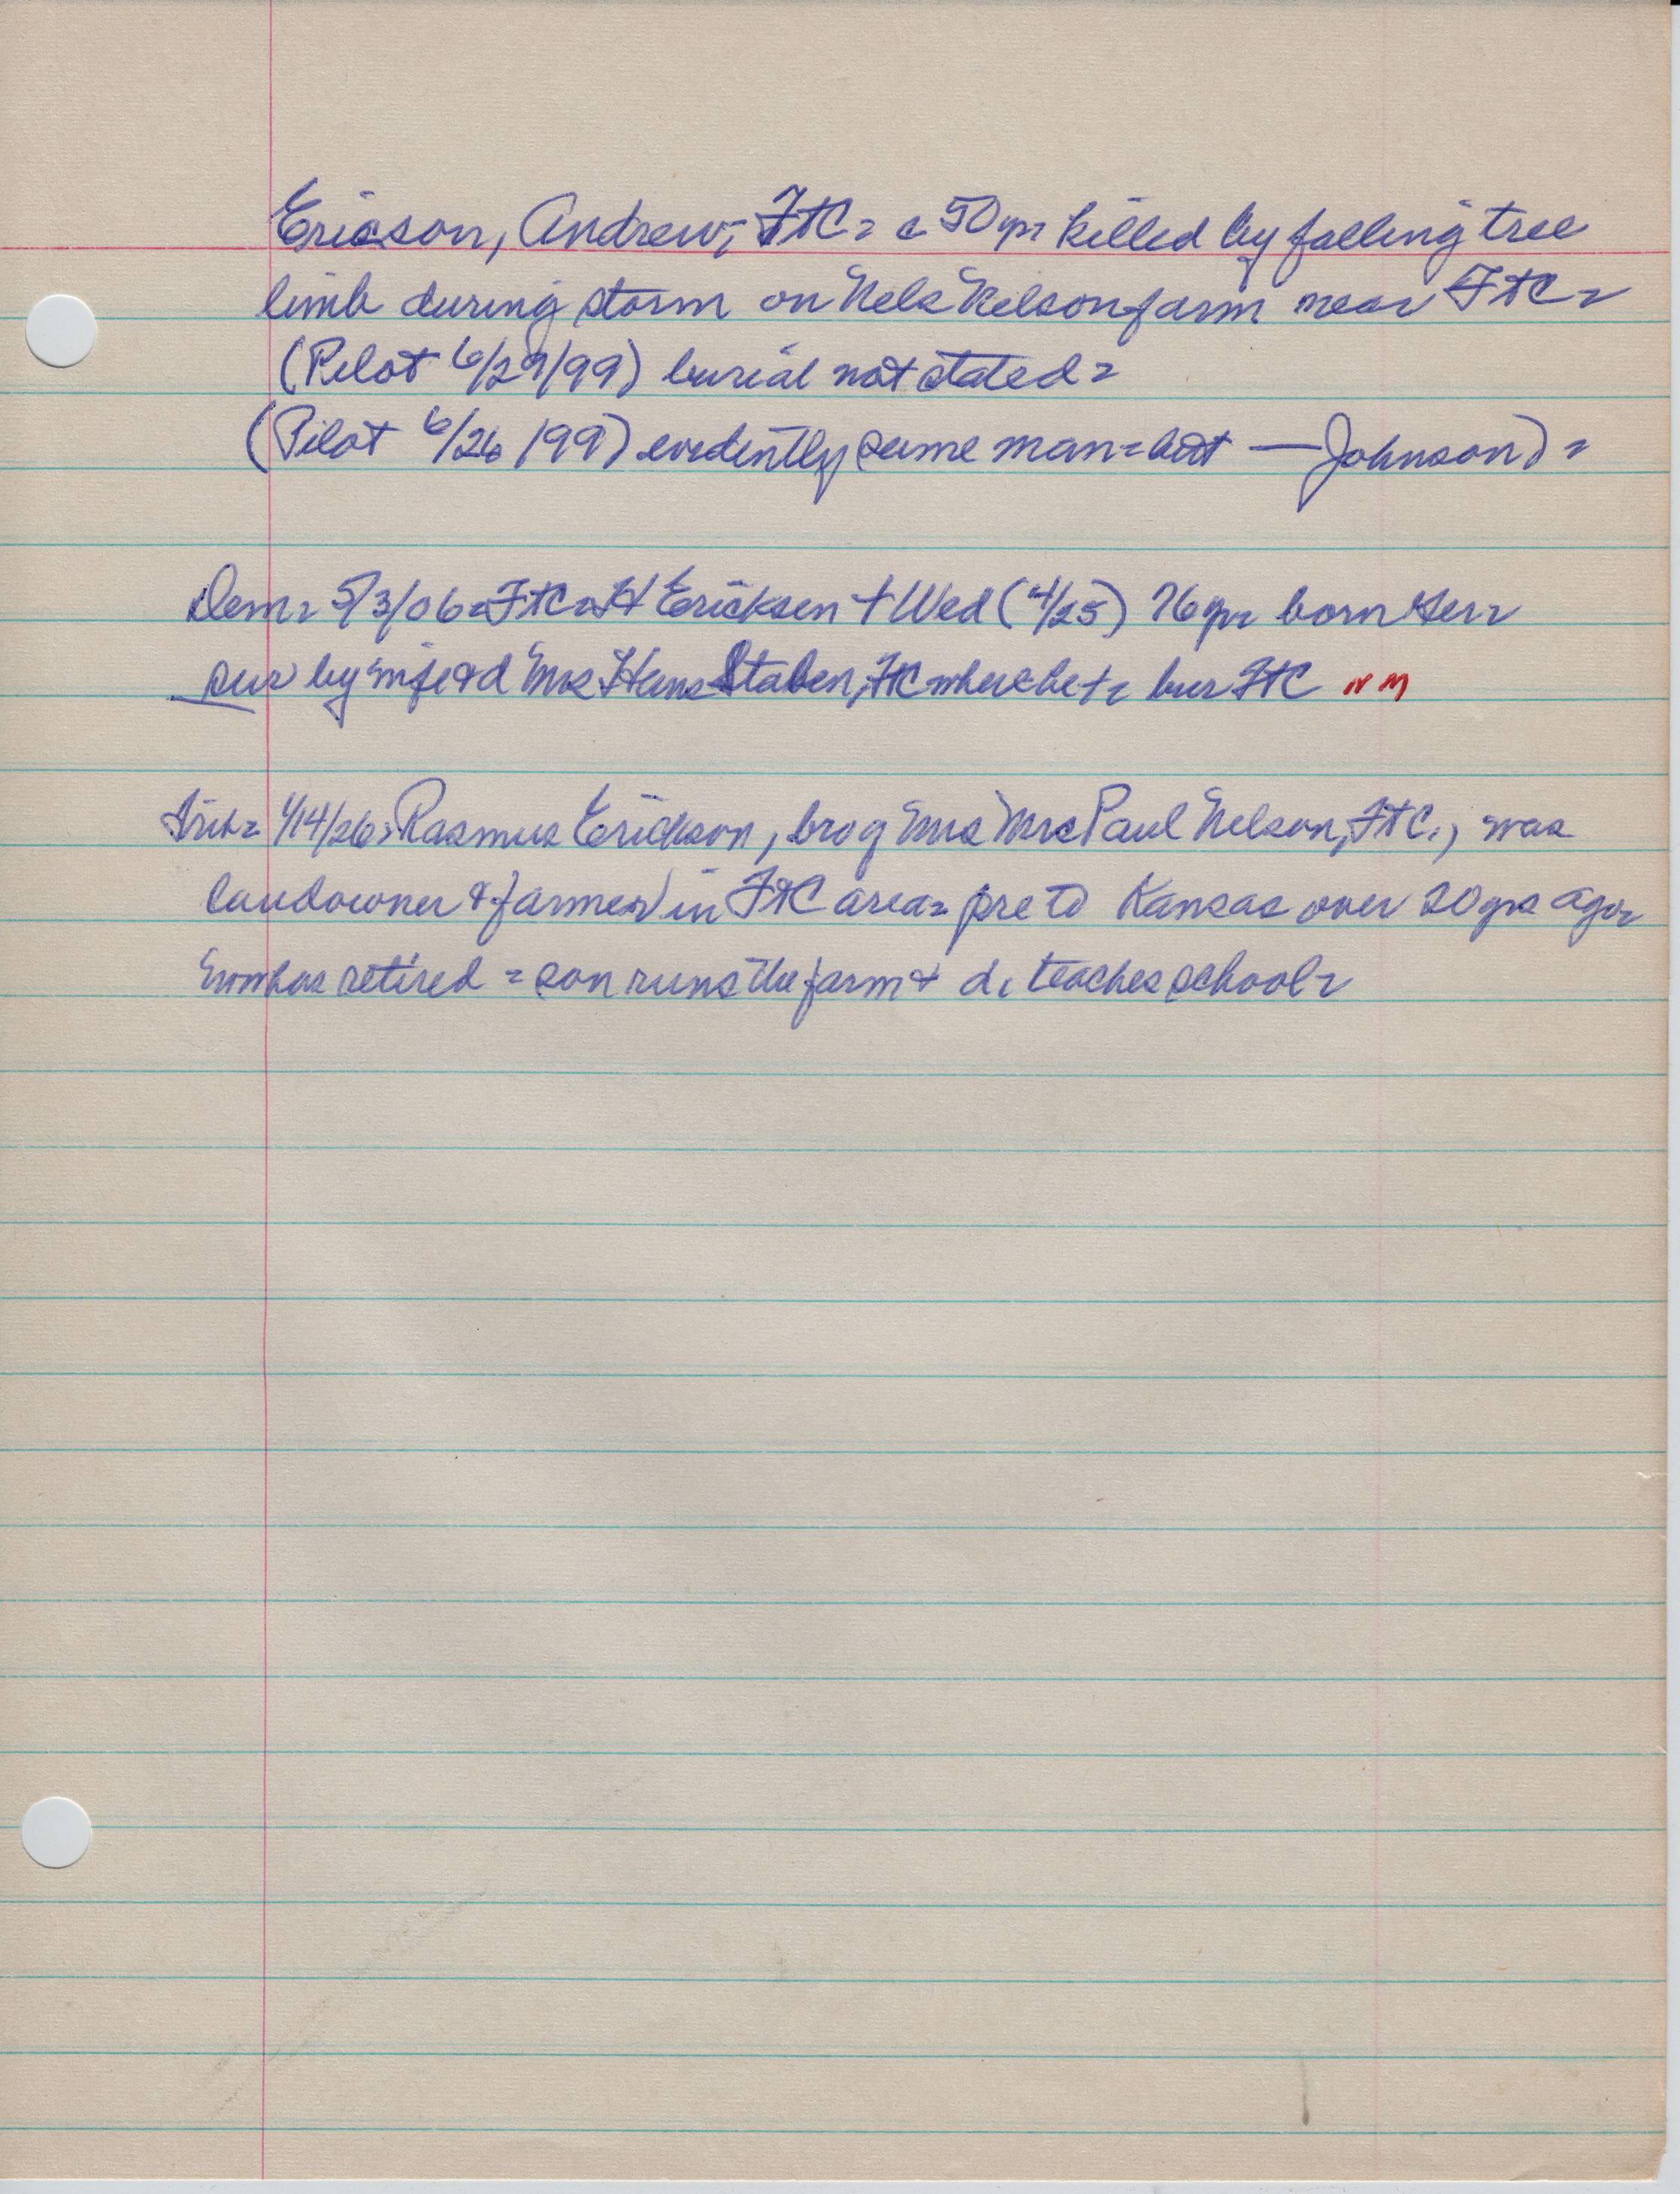 Ericson, Andrew, FtC = c 50 yr = killed by falling tree
limb during storm on Nels Nelson farm near FtC =
(Pilot 6/29/99) burial not stated =
(Pilot 6/26/99) evidently same man = but — Johnson) =
Dem = 5/3/06 = FtC = H Ericksen + Wed (4/25) 76 yr = born Ger =
sur by wife & d Mrs Hans Staben, FtC where he + = bur FtC NM
1/14/26 = Rasmus Erickson, bro of Mrs Paul Nelson, FtC., was
landowner & farmer in FtC area = pre to Kansas over 20 yrs ago =
now has retired = son runs the farm & d. teaches school =